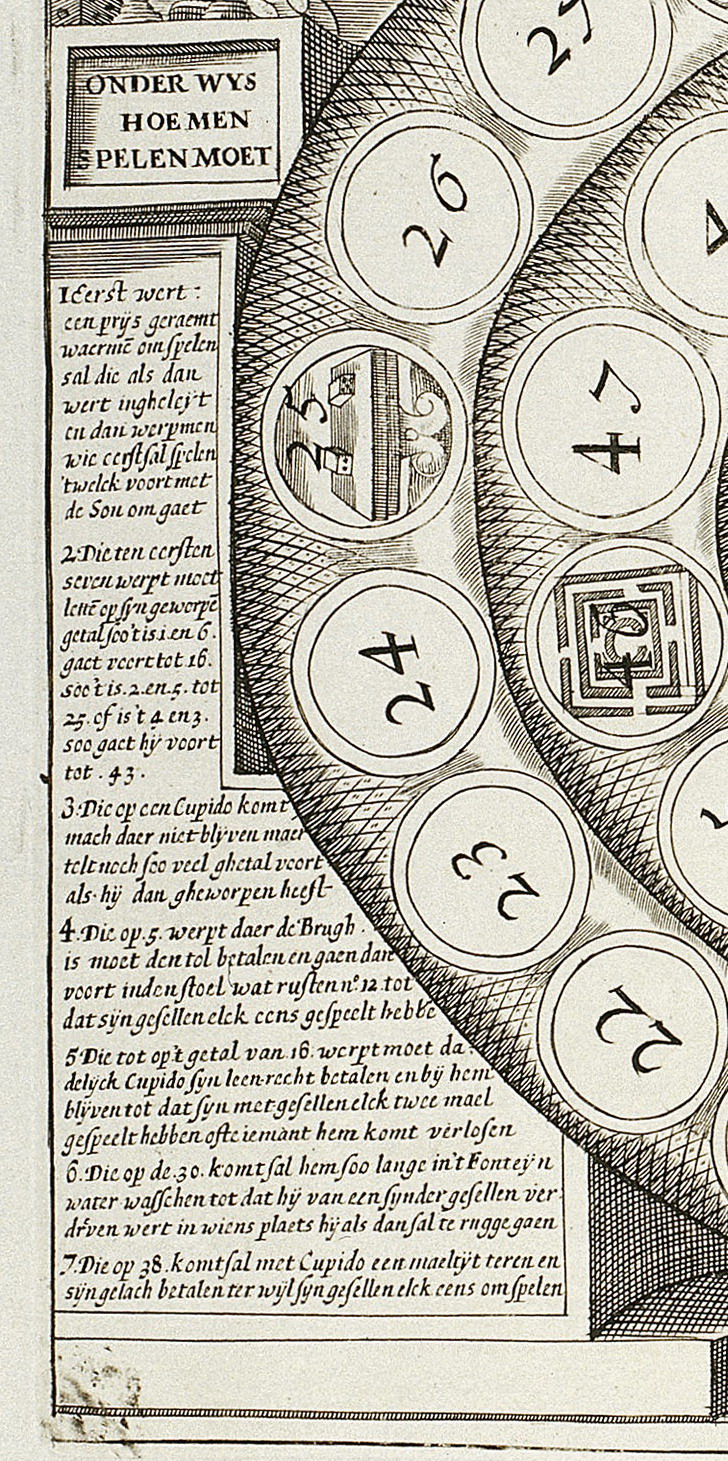 ONDER WYS
HOE MEN
SPELEN MOET
1 Eerst wert :
een prijs geraemt
waermē om spelen
sal die als dan
wert ingheleÿt
en dan werpmen
wie eerst sal spelen
'twelck voort met
de Son om gaet
2. Die ten eersten
seven werpt moet
lettē op syn geworpē
getal soo't is .1. en 6.
gaet voort tot 16.
soo't is .2. en .5. tot
25. of is't 4 en 3.
soo gaet hÿ voort
tot . 43.
3. Die op een Cupido komt
mach daer niet blÿven maer
telt noch soo veel ghetal voort
als hÿ dan gheworpen heeft
4. Die op .5. werpt daer de Brugh .
is moet den tol betalen en gaen dan
voort inden stoel wat rusten no 12 tot
dat syn gesellen elck eens gespeelt hebbe
5 Die tot op't getal van 16. werpt moet da.
delÿck Cupido syn leen-recht betalen en bÿ hem
blÿven tot dat syn met gesellen elck twee mael
gespeelt hebben ofte iemant hem komt verlosen
6. Die op de .30. komt sal hem soo lange in't Fonteÿn
water wasschen tot dat hÿ van een synder gesellen ver-
drēven wert in wiens plaets hÿ als dan sal te rugge gaen
7. Die op 38. komt sal met Cupido een maeltÿt teren en
syn gelach betalen ter wÿl syn gesellen elck eens om spelen
26
25
24
23
22
47